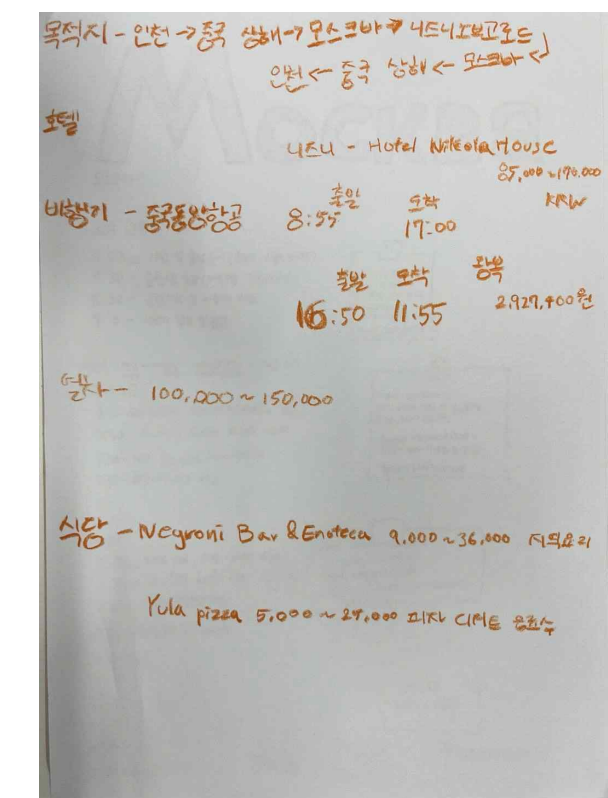 목적지 - 인천 → 중국 상해 → 모스크바 → 니즈니노브고로드
인천 ← 중국 상해 ← 모스크바 ←
호텔
니즈니 - Hotel Nikola House
85,000 ~ 170,000
KRW
출발 도착
비행기 - 중국동방항공 8:55 17:00
출발 도착 왕복
16:50 11:55 2,927,400원
열차 - 100,000 ~ 150,000
식당 - Negroni Bar & Enoteca 9,000 ~ 36,000 지역요리
Yula pizza 5,000 ~ 27,000 피자 디저트 음료수